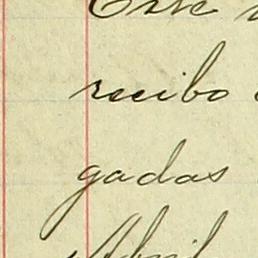 Este
recibo
gadas
Abril